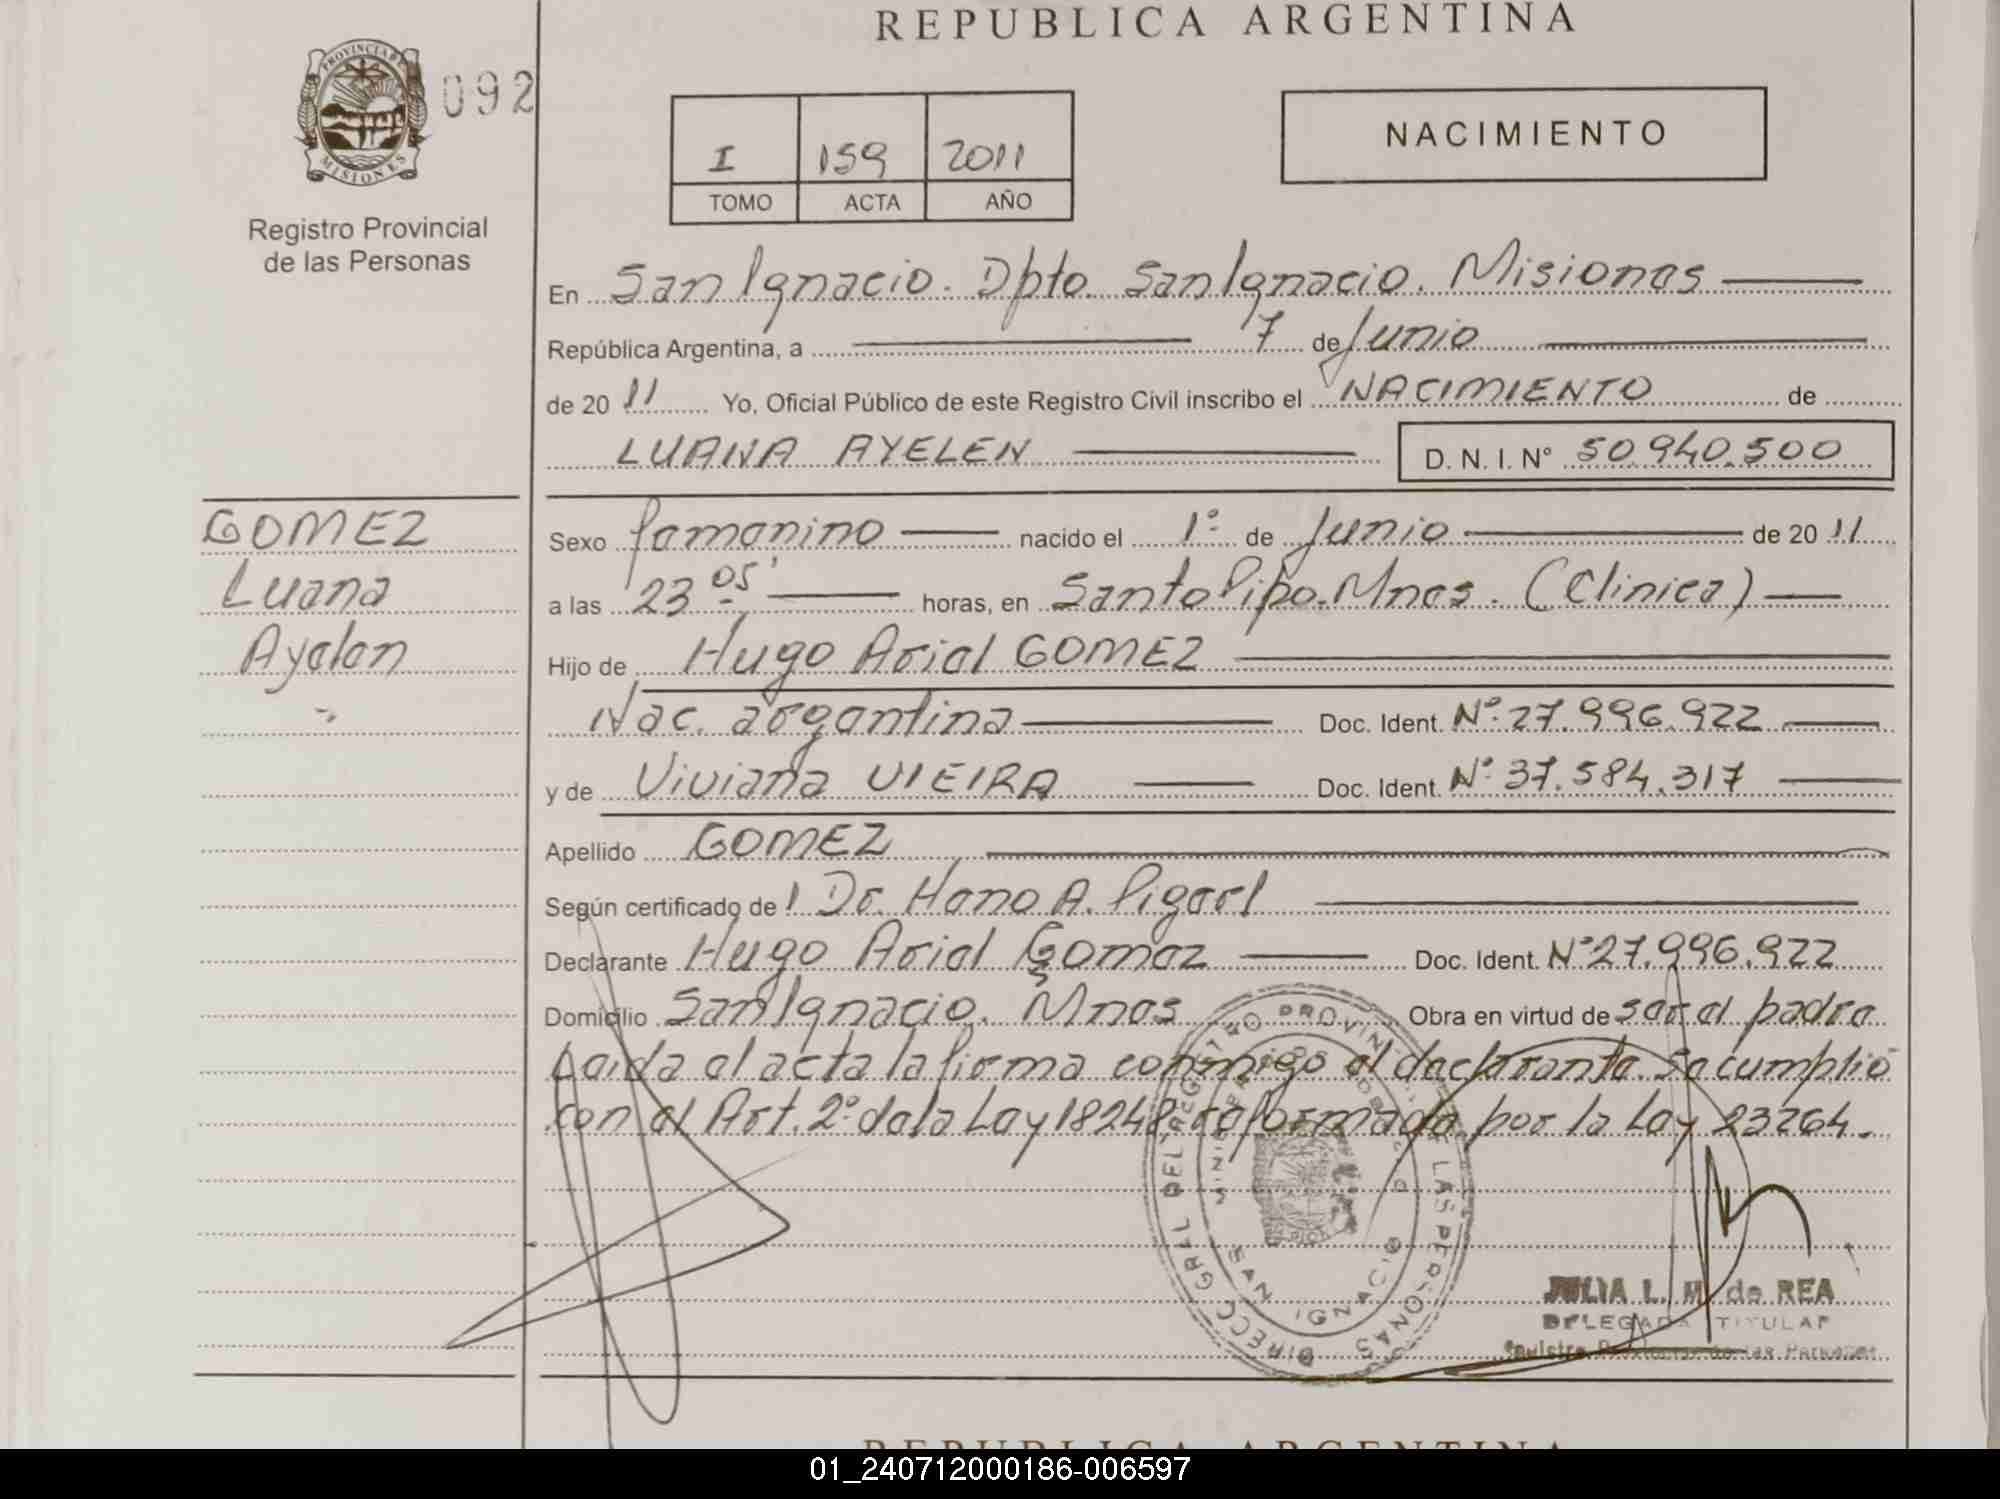 REPUBLICA ARGENTINA
PROVINCIA DE MISIONES
092
Registro Provincial
de las Personas
I 159 2011
TOMO ACTA AÑO
NACIMIENTO
En San Ignacio. Dpto. San Ignacio. Misiones
República Argentina, a 7 de Junio
de 2011 Yo, Oficial Público de este Registro Civil inscribo el NACIMIENTO de
LUANA AYELEN D. N. I. N° 50.940.500
GOMEZ
Luana
Ayelen
Sexo femenino nacido el 1° de Junio de 2011
a las 23 05' horas, en Santo Pipo. Mnes. (Clinica)
Hijo de Hugo Ariel GOMEZ
Nac. argentina Doc. Ident. N° 27.996.922
y de Viviana VIEIRA Doc. Ident. N° 37.584.317
Apellido GOMEZ
Según certificado de l Dr. Hano A. Pigerl
Declarante Hugo Ariel Gomez Doc. Ident. N° 27.996.922
Domicilio San Ignacio. Mnes Obra en virtud de ser el padre
Leída el acta la firma conmigo el declarante. Se cumplió
con el Art. 2° de la Ley 18248 reformada por la Ley 23264.
DIRECC GRAL DEL REGISTRO PROVINCIAL DE LAS PERSONAS
SAN IGNACIO
JULIA L. M. de REA
DELEGADA TITULAR
Registro Provincial de las Personas
REPUBLICA ARGENTINA
01_240712000186-006597